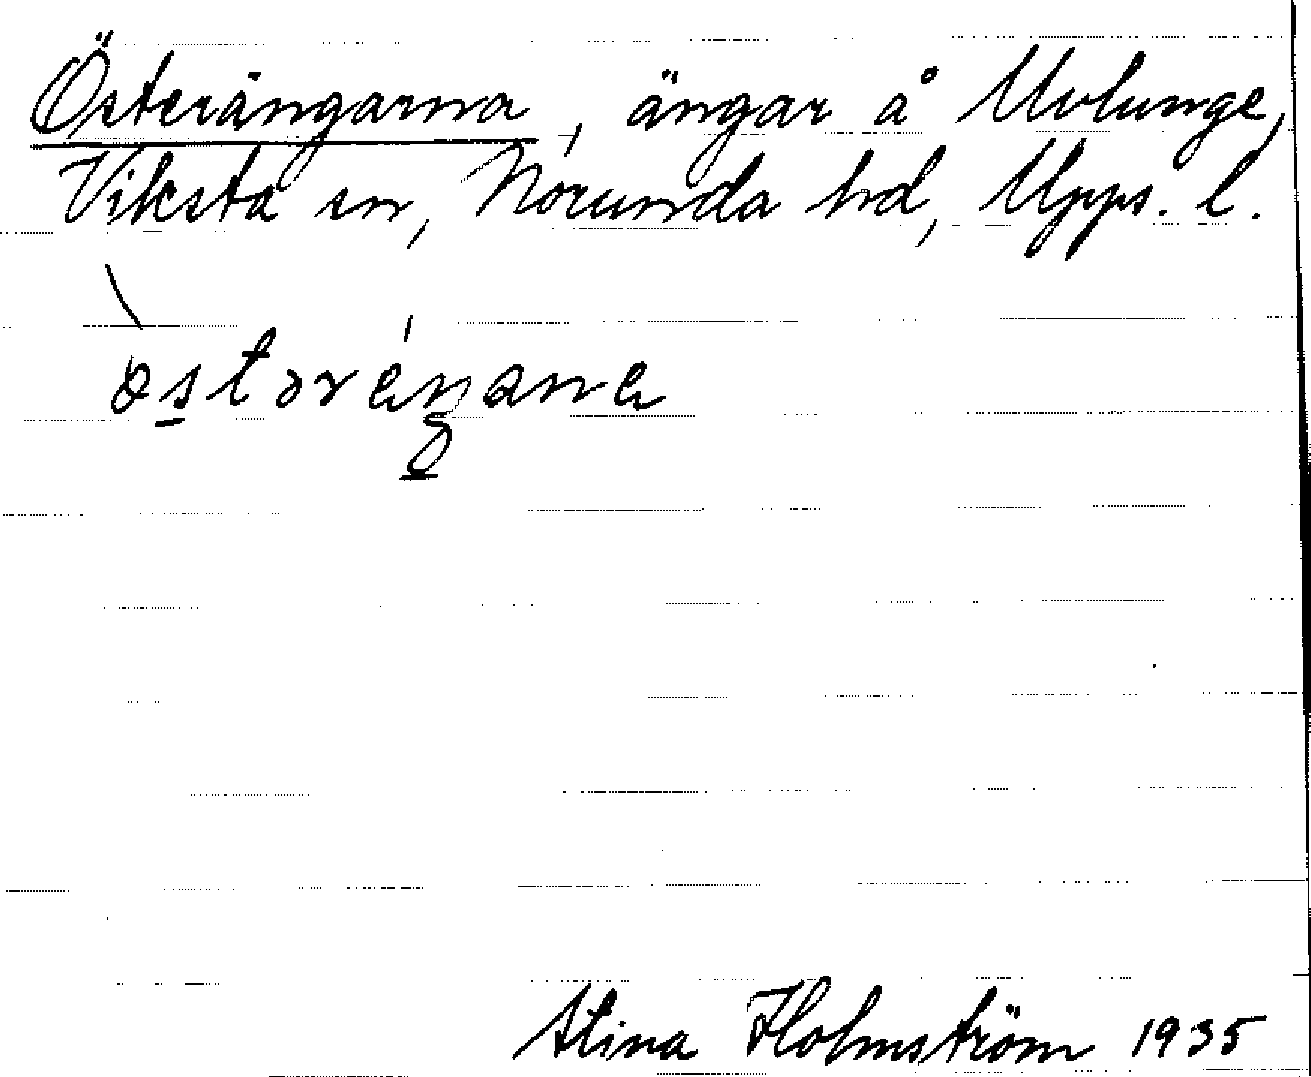 Österängarna, ängar å Uvlunge,
Viksta sn, Norunda hd, Upps. l.
Stina Holmström 1935